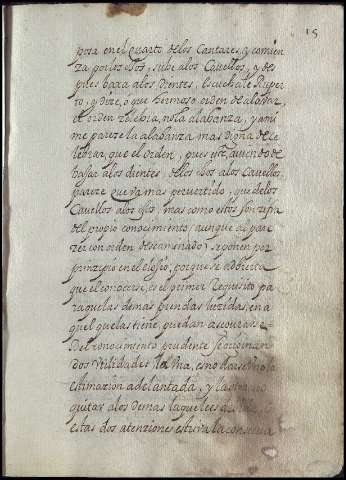 15
posa en el quarto delos Cantares, y comien
za por los ojos, sube alos Cavellos, y des
pues baxa alos dientes, escuchale Ruper
to, y dize, o que hermoso orden de alabar,
el orden zelebra, no la alabanza, y ami
me pareze la alabanza mas digna de ce
lebrar, que el orden, pues este, aviendo de
baxar alos dientes, delos ojos alos Cavellos,
pareze que va mas pervertido, que delos
Cavellos alos ojos, mas como estos son
del propio conocimiento (aunque al pare
zer con orden descaminado) se ponen por
prinzipio en el elojio, porque se advierta
que el conocerse, es el primer Requisito pa
ra que las demas prendas luzidas, en a
quel que las tiene, puedan asegurarse
Del conocimiento prudente se originan
dos utilidades, la una, es no hazerse la
estimazion adelantada, y la otra no
quitar alos demas la que les
estas dos atenziones estriva la